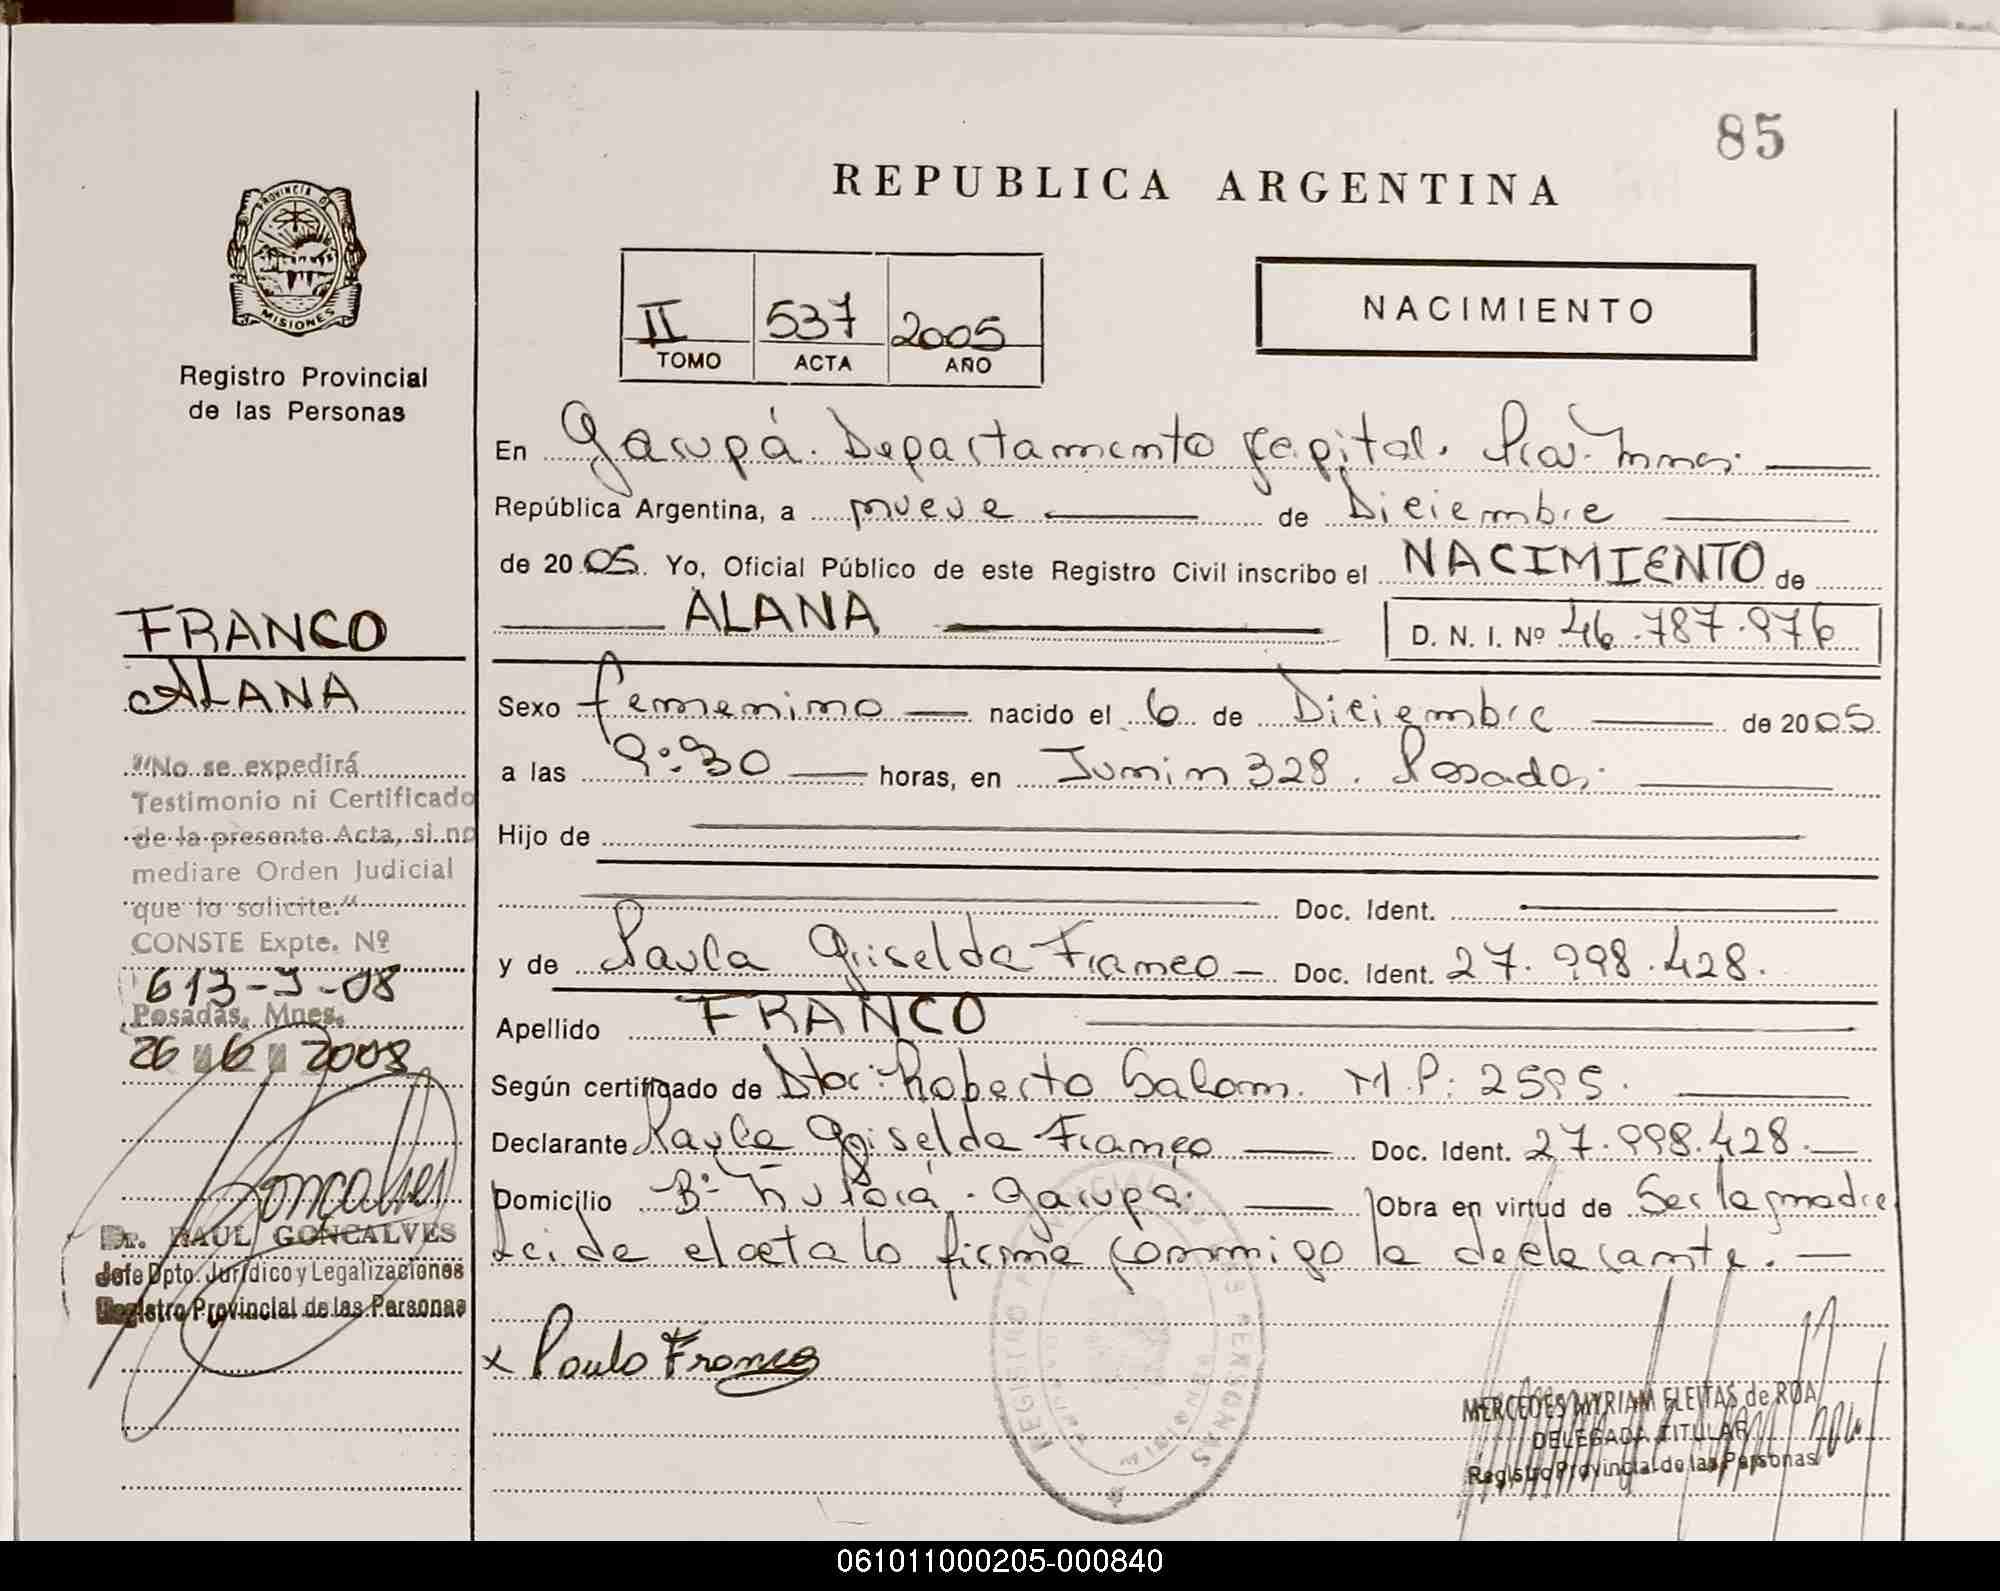 85
REPUBLICA ARGENTINA
PROVINCIA DE
MISIONES
Registro Provincial
de las Personas
II 537 2005
TOMO ACTA AÑO
NACIMIENTO
En Garupá. Departamento Capital. Pcia. Mnes.
República Argentina, a nueve de Diciembre
de 2005. Yo, Oficial Público de este Registro Civil inscribo el NACIMIENTO de
ALANA D. N. I. Nº 46.787.976
Sexo femenino nacido el 6 de Diciembre de 2005.
a las 9:30 horas, en Junin 328. Posadas.
Hijo de
Doc. Ident.
y de Paula Griselda Franco Doc. Ident. 27.998.428.
Apellido FRANCO
Según certificado de Dtor: Roberto Salom. M.P: 2595.
Declarante Paula Griselda Franco Doc. Ident. 27.998.428.
Domicilio Bº Garupá. Obra en virtud de Ser la madre
Leida el acta lo firma conmigo la declarante.
x Paula Franco
REGISTRO PROVINCIAL DE LAS PERSONAS
MERCEDES MYRIAM FLEITAS de ROA
DELEGADA TITULAR
Registro Provincial de las Personas
FRANCO
ALANA
"No se expedirá
Testimonio ni Certificado
de la presente Acta, si no
mediare Orden Judicial
que lo solicite."
CONSTE Expte. Nº
613-J-08
Posadas, Mnes.
26 6 2008
Goncalves
Dr. RAUL GONCALVES
Jefe Dpto. Jurídico y Legalizaciones
Registro Provincial de las Personas
061011000205-000840